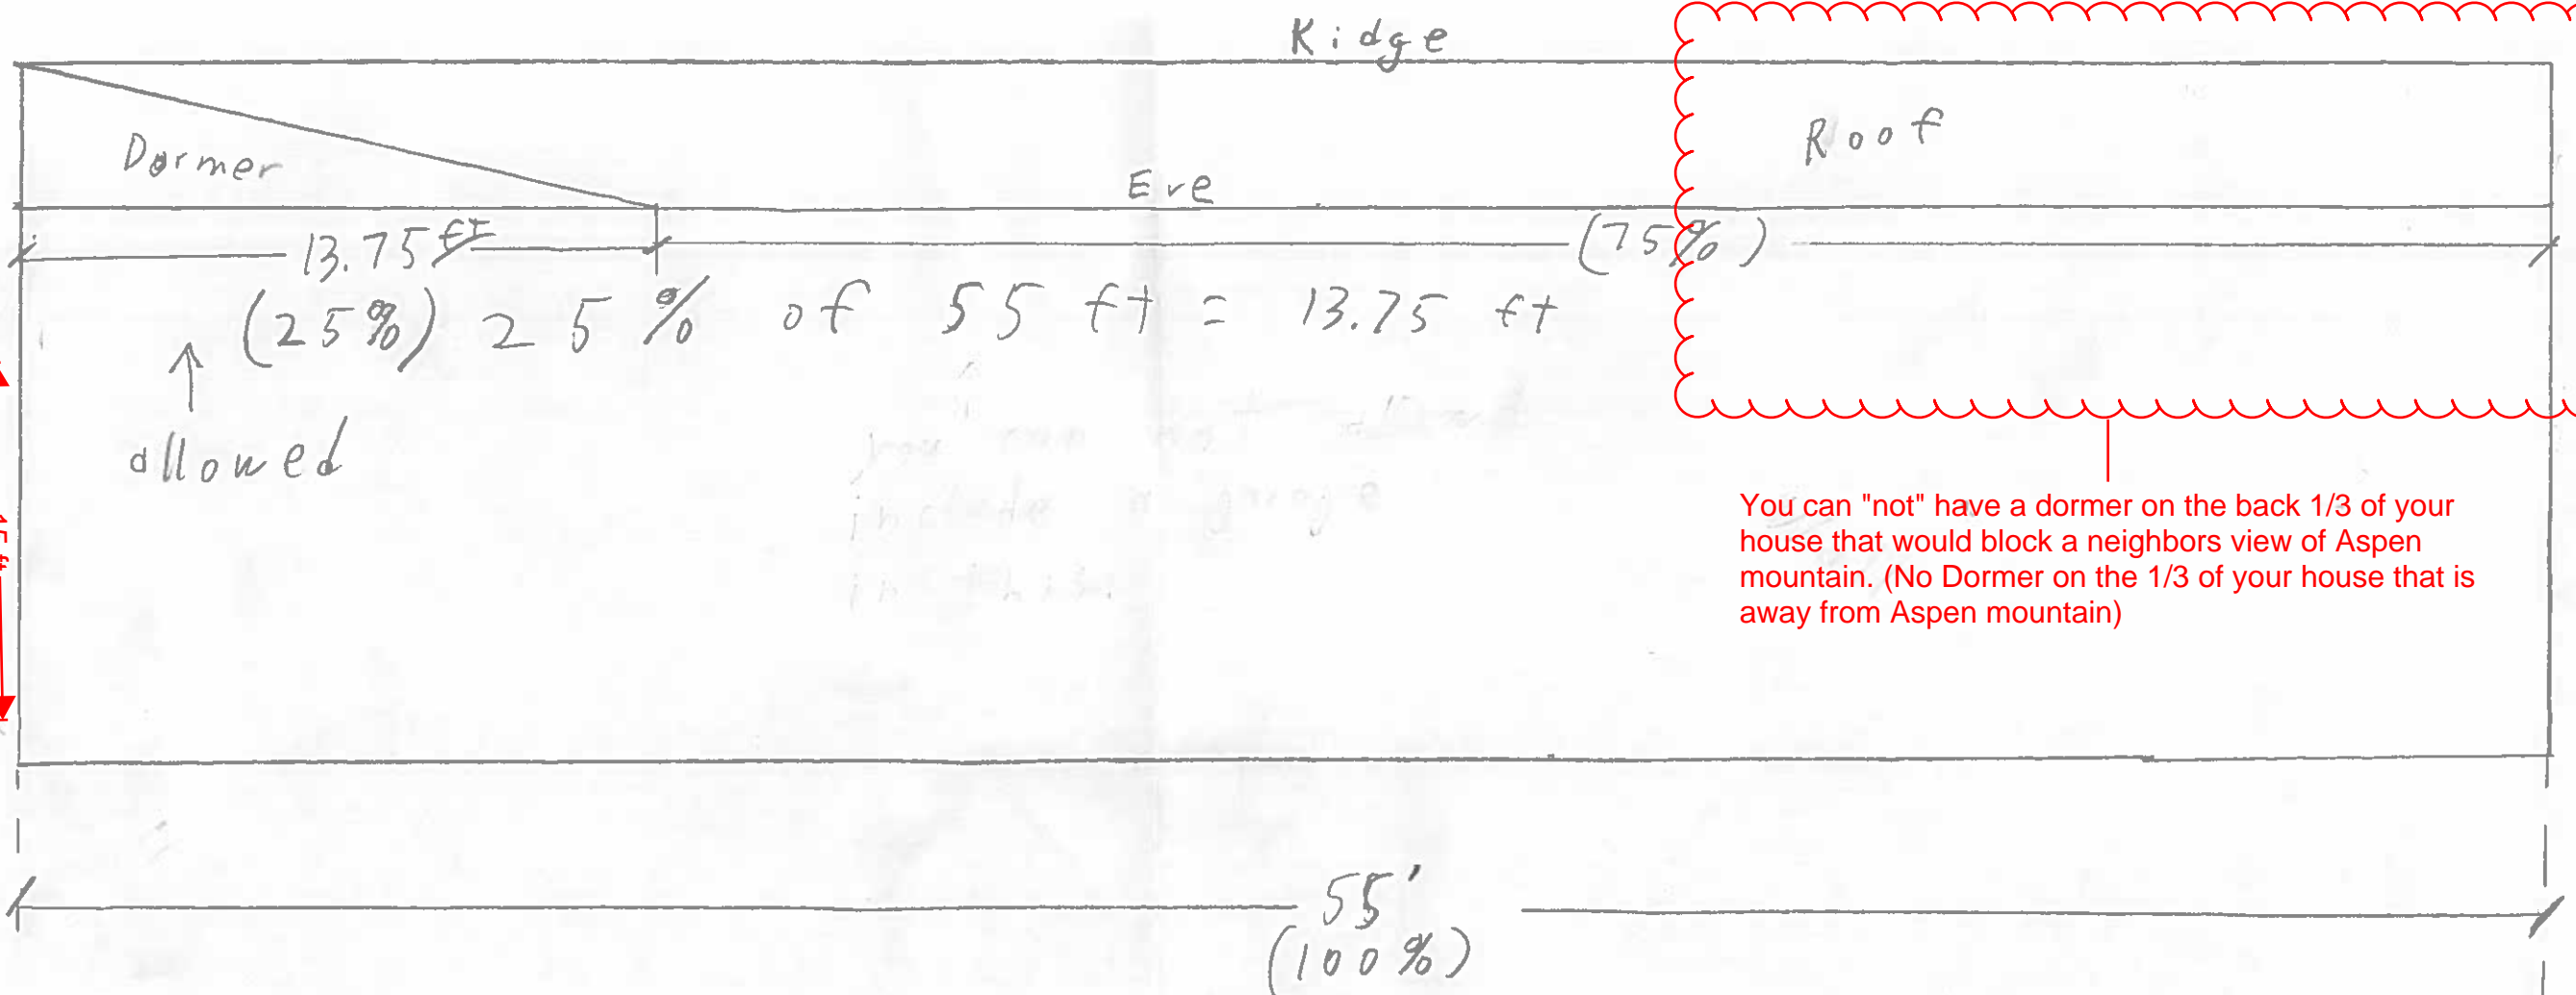 Ridge
Roof
Dormer
Eve
13.75 ft
(75%)
(25%) 25% of 55 ft = 13.75 ft
allowed
15 ft
You can "not" have a dormer on the back 1/3 of your
house that would block a neighbors view of Aspen
mountain. (No Dormer on the 1/3 of your house that is
away from Aspen mountain)
55'
(100%)